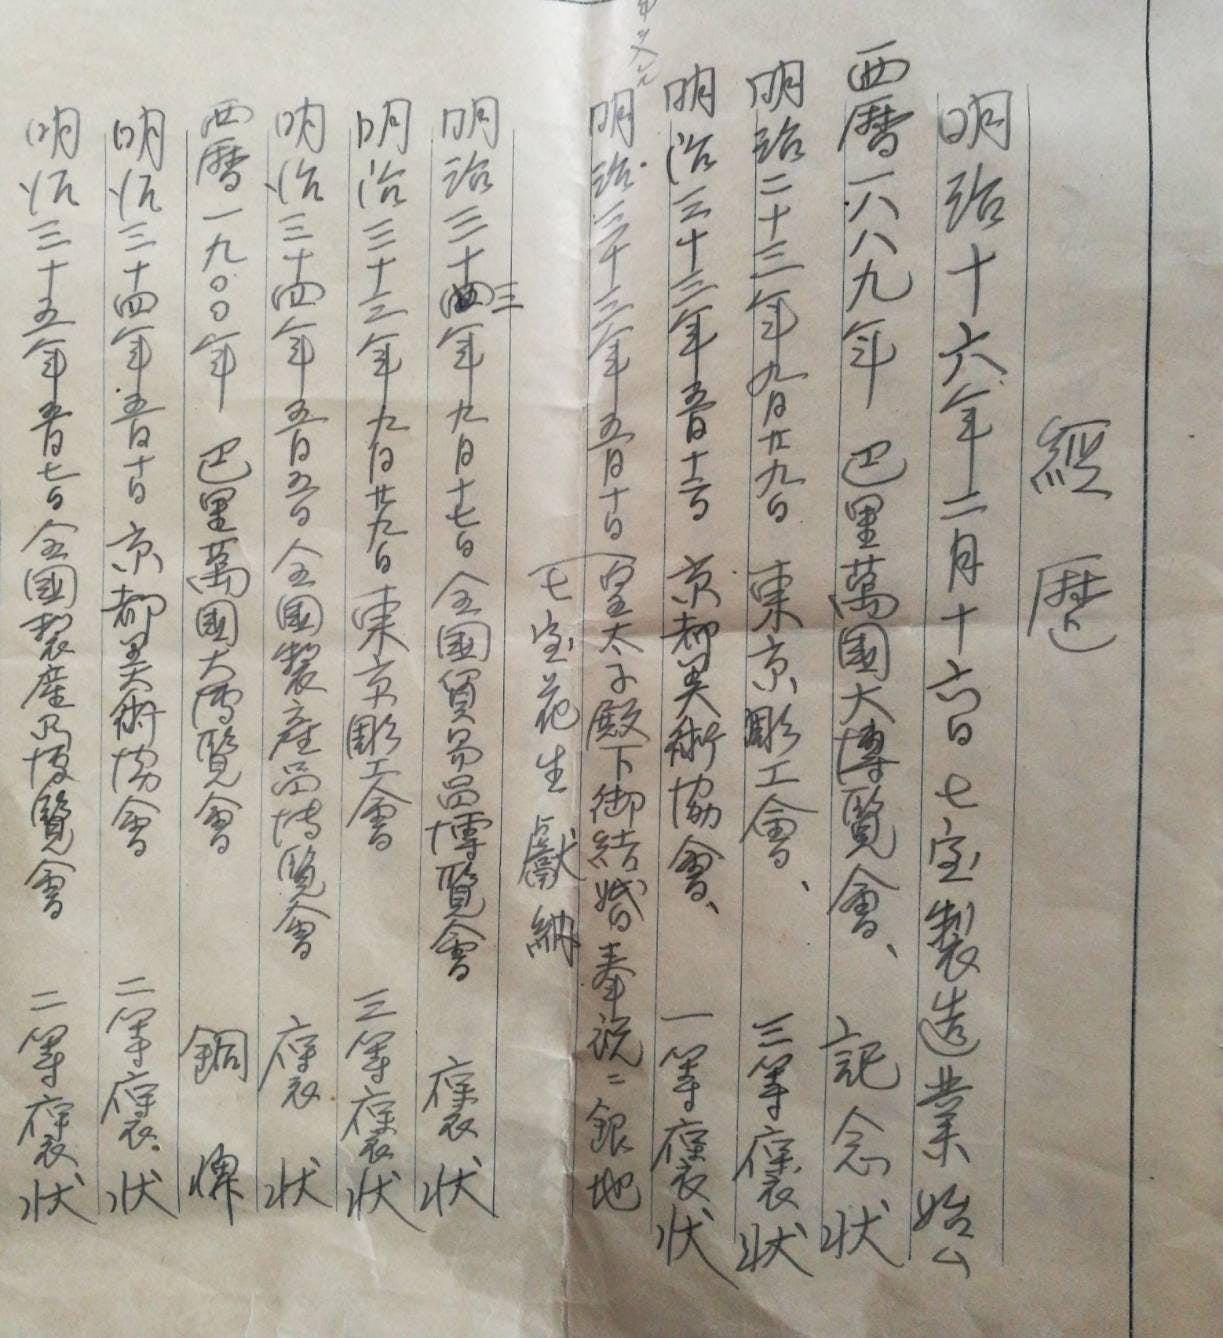 經歴
明治十六年二月十六日七宝製造業始ム
西暦一八八九年 巴里萬國大博覧會、 記念状
明治二十三年九月廿九日 東京彫工會、 三等褒状
明治三十三年五月十二日 京都美術協會、 一等褒状
明治三十三年五月十日 皇太子殿下御結婚奉祝ニ銀地
七宝花生獻納
明治三十三年九月十七日 全國貿易品博覧會 褒状
明治三十三年九月廿九日 東京彫工會 三等褒状
明治三十四年五月五日 全國製産品博覧會 褒状
西暦一九〇〇年 巴里萬國大博覧會 銅牌
明治三十四年五月十日 京都美術協會 二等褒状
明治三十五年五月七日 全國製産品博覧會 二等褒状